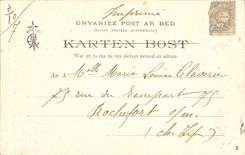 Imprimé
UNVANIEZ POST AR BED
(UNION POSTALE UNIVERSELLE)
KARTEN BOST
War an tu-mañ na vez skrivet nemed an adres
A
10
9
Da Melle Marie Louise Claverie
75 rue du Rempart 75
Rochefort s/m.
(che Infre)